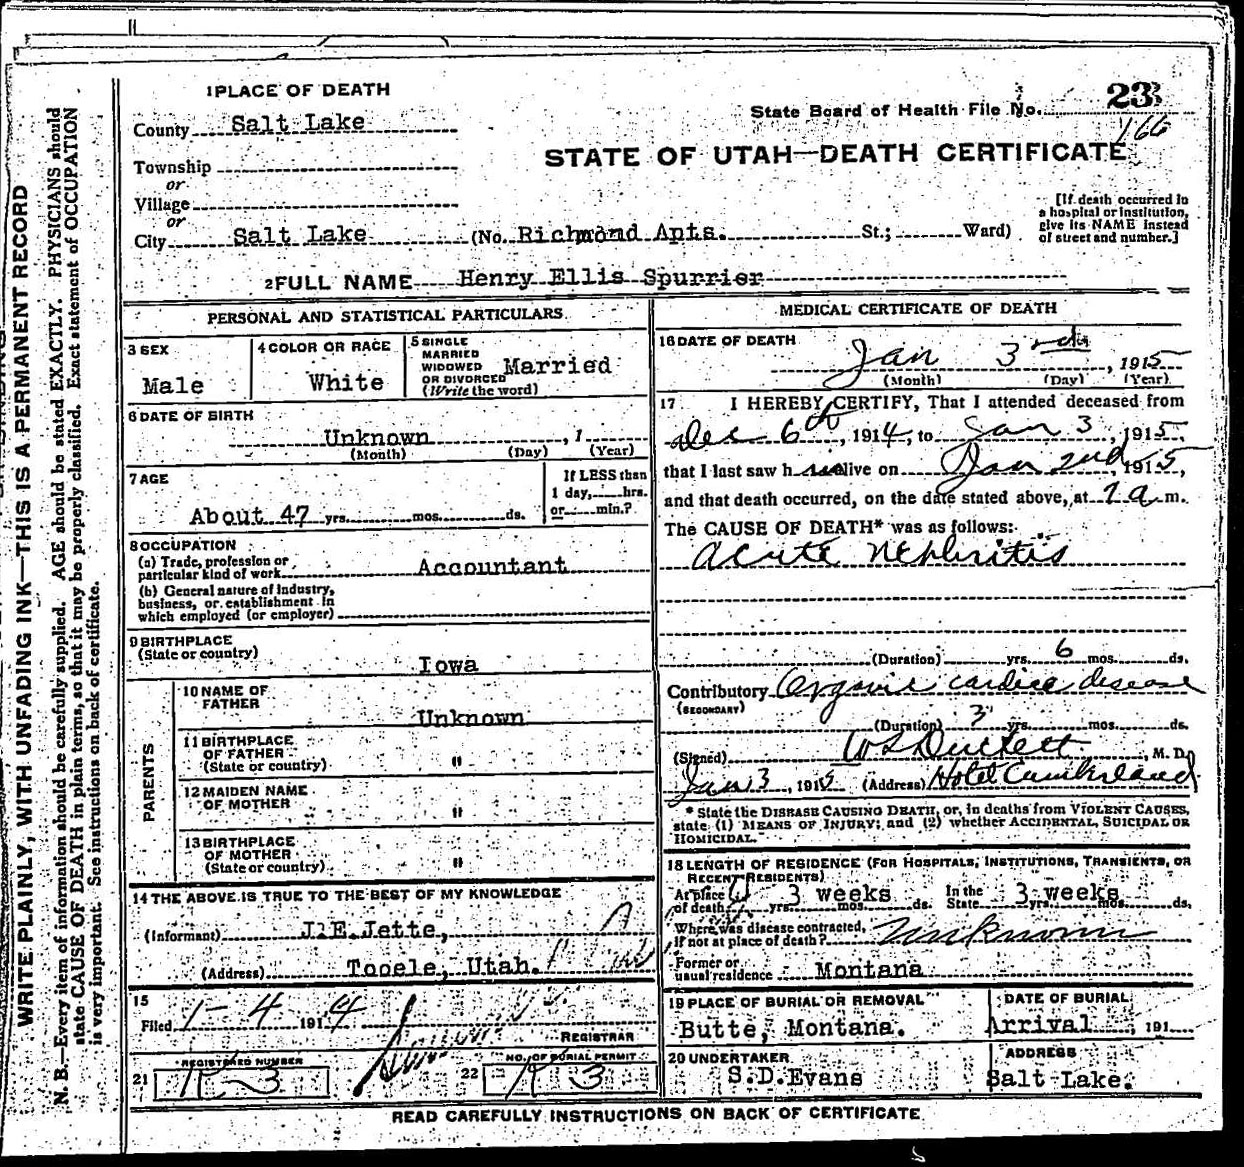 1 PLACE OF DEATH
County Salt Lake
Township
or
Village
or
City Salt Lake (No. Richmond Apts. St.; Ward)
State Board of Health File No. 23
166
STATE OF UTAH—DEATH CERTIFICATE
[If death occurred in
a hospital or institution,
give its NAME instead
of street and number.]
2 FULL NAME Henry Ellis Spurrier
PERSONAL AND STATISTICAL PARTICULARS
3 SEX
Male
4 COLOR OR RACE
White
5 SINGLE
MARRIED
WIDOWED
OR DIVORCED
(Write the word)
Married
6 DATE OF BIRTH
Unknown , 1
(Month) (Day) (Year)
7 AGE
About 47 yrs. mos. ds.
If LESS than
1 day, hrs.
or min.?
8 OCCUPATION
(a) Trade, profession or
particular kind of work Accountant
(b) General nature of Industry,
business, or establishment in
which employed (or employer)
9 BIRTHPLACE
(State or country)
Iowa
PARENTS
10 NAME OF
FATHER
Unknown
11 BIRTHPLACE
OF FATHER
(State or country) "
12 MAIDEN NAME
OF MOTHER "
13 BIRTHPLACE
OF MOTHER
(State or country) "
14 THE ABOVE IS TRUE TO THE BEST OF MY KNOWLEDGE
(Informant) J.E.Jette,
(Address) Tooele, Utah.
15
Filed 1-4 1914
REGISTRAR
REGISTERED NUMBER
21
NO. OF BURIAL PERMIT
22
MEDICAL CERTIFICATE OF DEATH
16 DATE OF DEATH
Jan 3rd , 1915
(Month) (Day) (Year)
17 I HEREBY CERTIFY, That I attended deceased from
Dec 6th, 1914, to Jan 3, 1915,
that I last saw him alive on Jan 2nd, 1915,
and that death occurred, on the date stated above, at 1 a m.
The CAUSE OF DEATH* was as follows:
acute nephritis
(Duration) yrs. 6 mos. ds.
Contributory Organic cardice desease
(SECONDARY)
(Duration) 3 yrs. mos. ds.
(Signed) , M. D.
Jan 3, 1915 (Address) Hotel Cumberland
* State the DISEASE CAUSING DEATH, or, in deaths from VIOLENT CAUSES,
state (1) MEANS OF INJURY; and (2) whether ACCIDENTAL, SUICIDAL OR
HOMICIDAL.
18 LENGTH OF RESIDENCE (FOR HOSPITALS, INSTITUTIONS, TRANSIENTS, OR
RECENT RESIDENTS)
At place
of death yrs. 3 weeks mos. ds. In the
State 3 weeks yrs. mos. ds.
Where was disease contracted,
if not at place of death? Unknown
Former or
usual residence Montana
19 PLACE OF BURIAL OR REMOVAL
Butte, Montana.
DATE OF BURIAL
Arrival , 191
20 UNDERTAKER
S.D.Evans
ADDRESS
Salt Lake.
READ CAREFULLY INSTRUCTIONS ON BACK OF CERTIFICATE
WRITE PLAINLY, WITH UNFADING INK—THIS IS A PERMANENT RECORD
N. B.—Every item of information should be carefully supplied. AGE should be stated EXACTLY. PHYSICIANS should
state CAUSE OF DEATH in plain terms, so that it may be properly classified. Exact statement of OCCUPATION
is very important. See instructions on back of certificate.